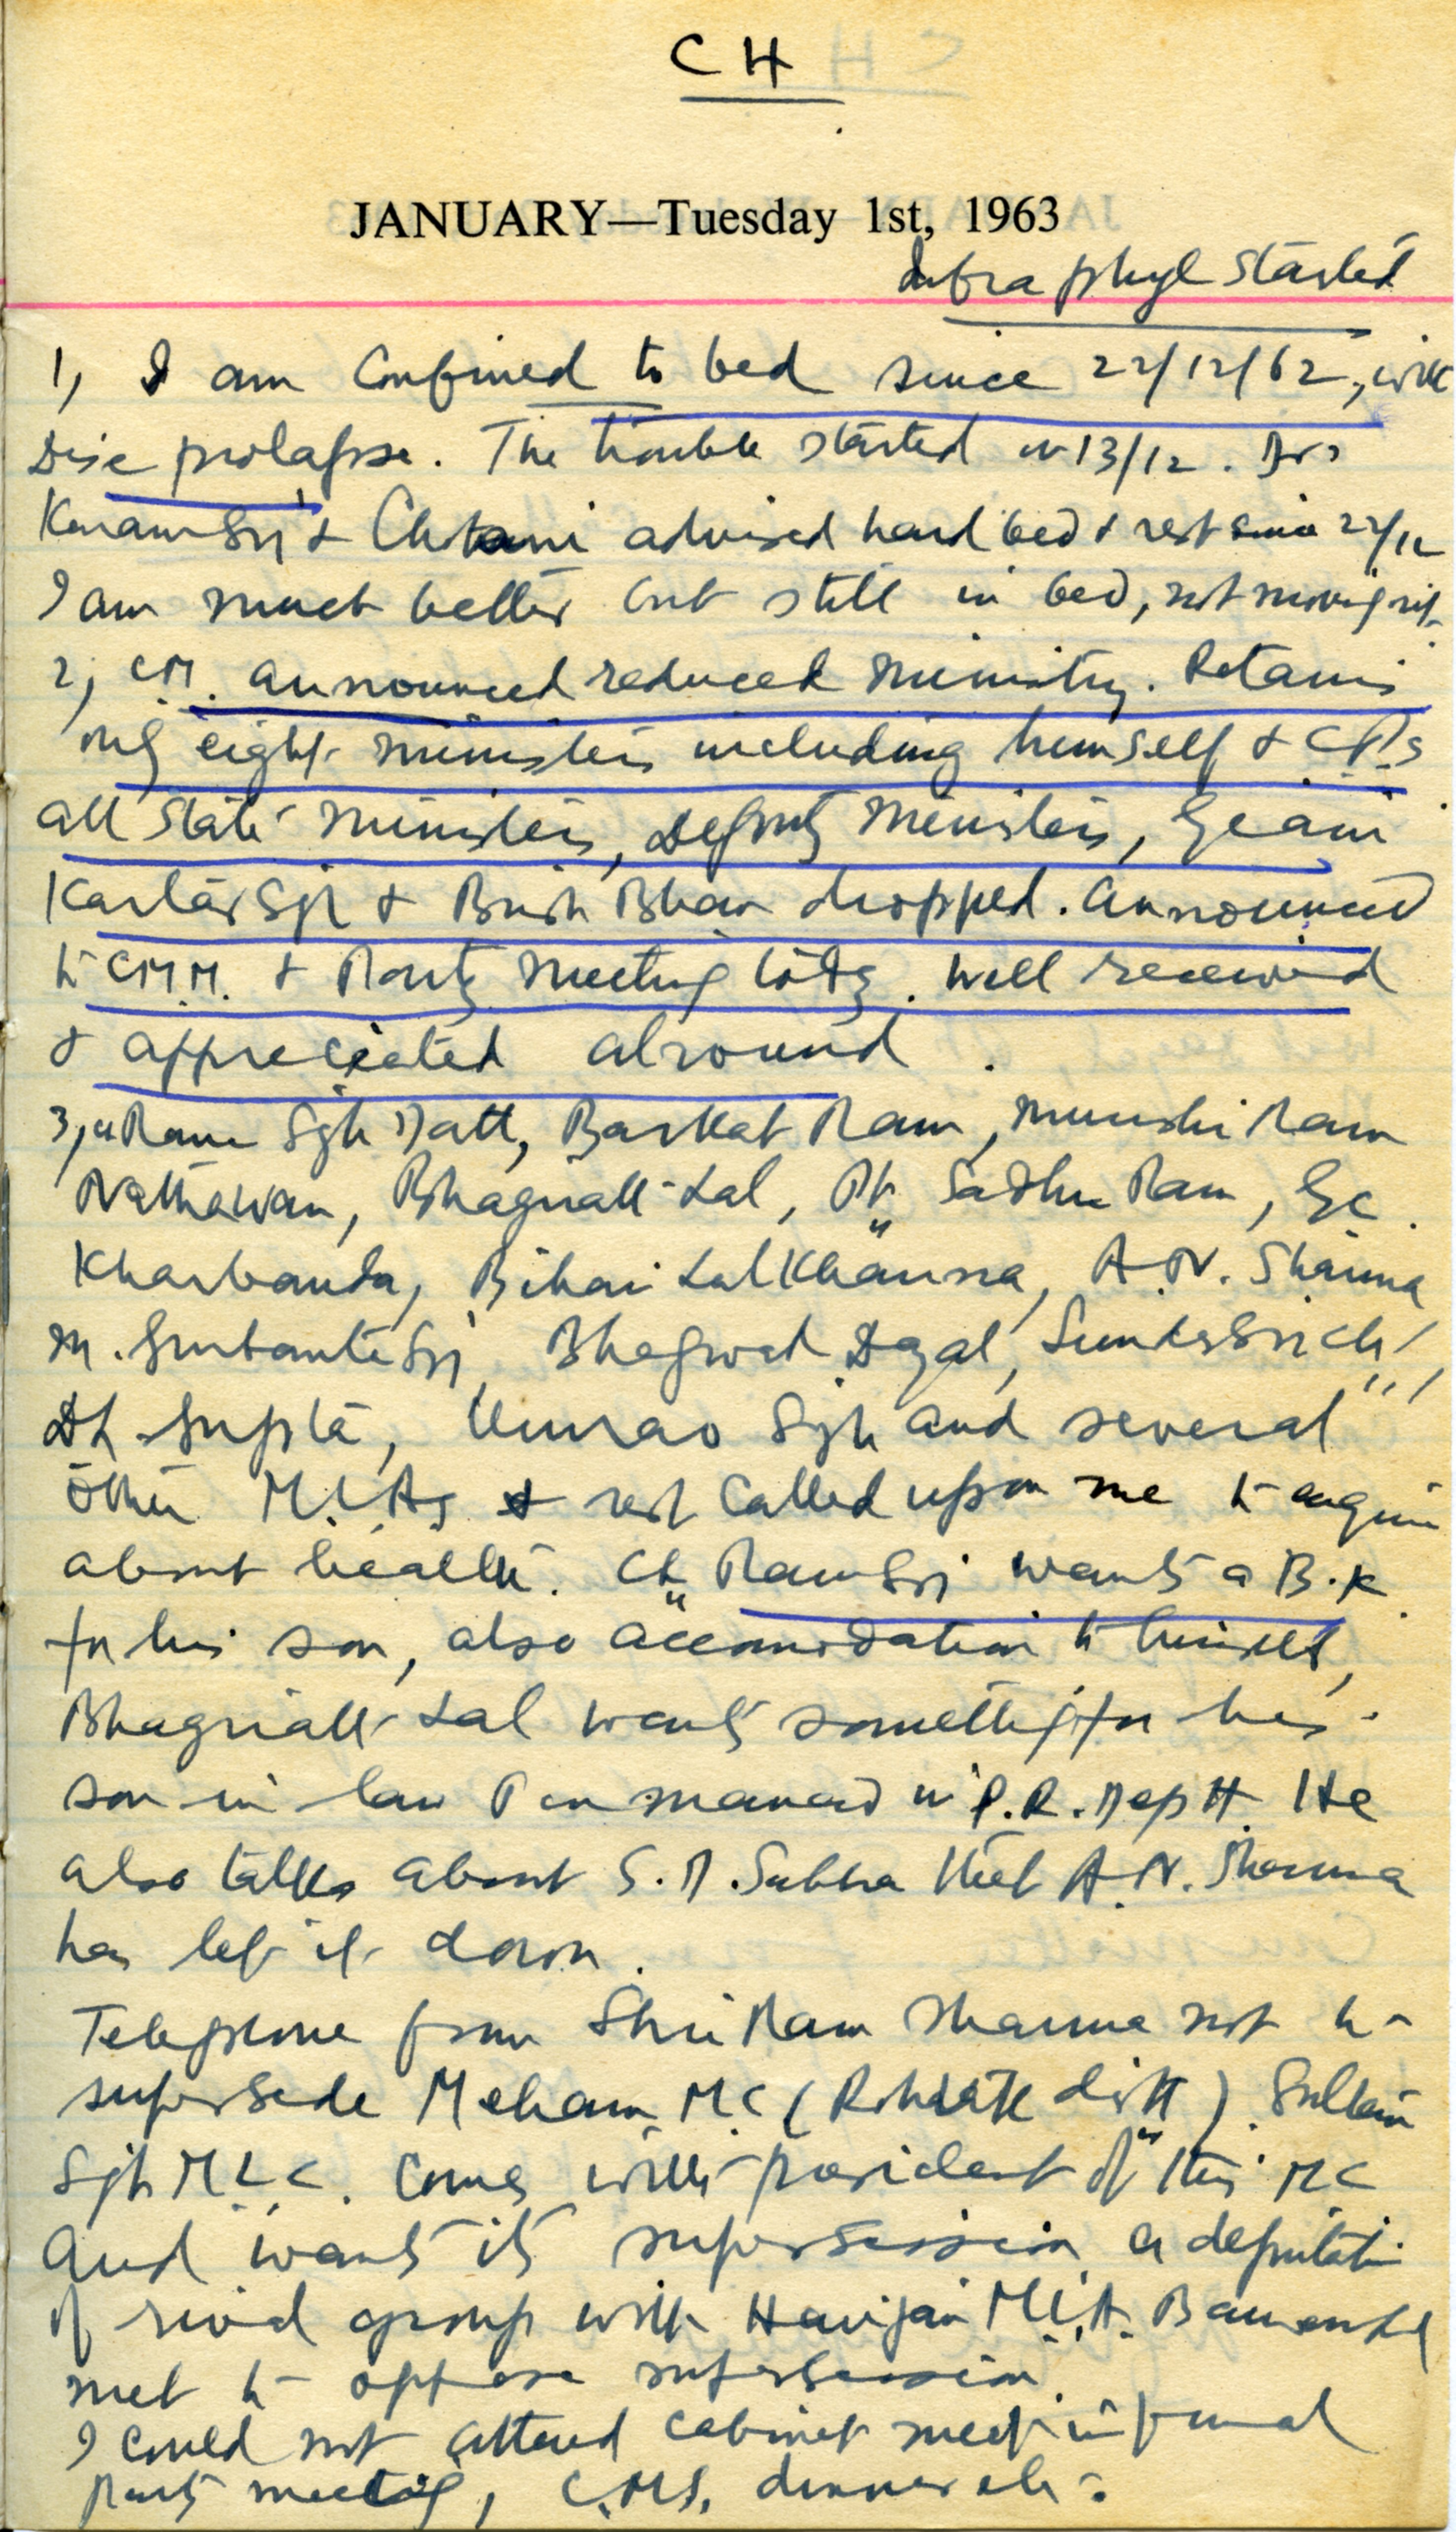 CH
JANUARY—Tuesday 1st, 1963
phyl started
1, I am confined to bed since 22/12/62, with
Disc prolapse. The trouble started on 13/12. Drs
Karam Sgh & advised hard bed & rest since 22/12
I am much better but still in bed, not moving
2, C.M. announced reduced ministry. Retains
only eight ministers including himself &
all State ministers, Deputy Ministers, Giani
Kartar Sgh & Brish Bhan dropped. Announced
to C.M.M. & Party meeting today. Well received
& appreciated alround.
3, Rann Sgh Datt, Barkat Ram, Munshi Ram
Nathawan, Bhagriath Lal, Pt. Sadhu Ram, G.C.
Kharbanda, Bihari Lal Khanna, A.N. Sharma
M. Gurbanta Sgh, Bhagwat Dyal, Sunder
Gupta, Umrao Sgh and several
other M.L.As & rest called upon me to enquire
about health. Ch. Ram Sgh wants a B.K.
for his son, also accomodation to himself,
Bhagriath Lal wants something for his
son in law in P.R. Deptt. He
also talks about S.D. Sabha that A.N. Sharma
has let it down.
Telephone from Shri Ram Sharma not to
supersede Meham M.C (Rohtak distt). Sultan
Sgh M.L.C. comes with president of this MC
and wants its supersession. A deputation
of rival group with Harijan M.L.A.
met to oppose supersession.
I could not attend cabinet meet informal
Party meeting, C.M's. dinner etc.